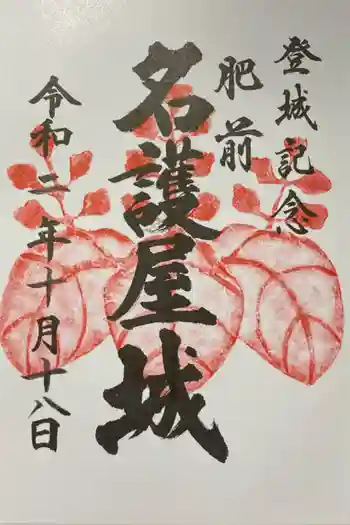 登城記念
肥前
名護屋城
令和二年十月十八日